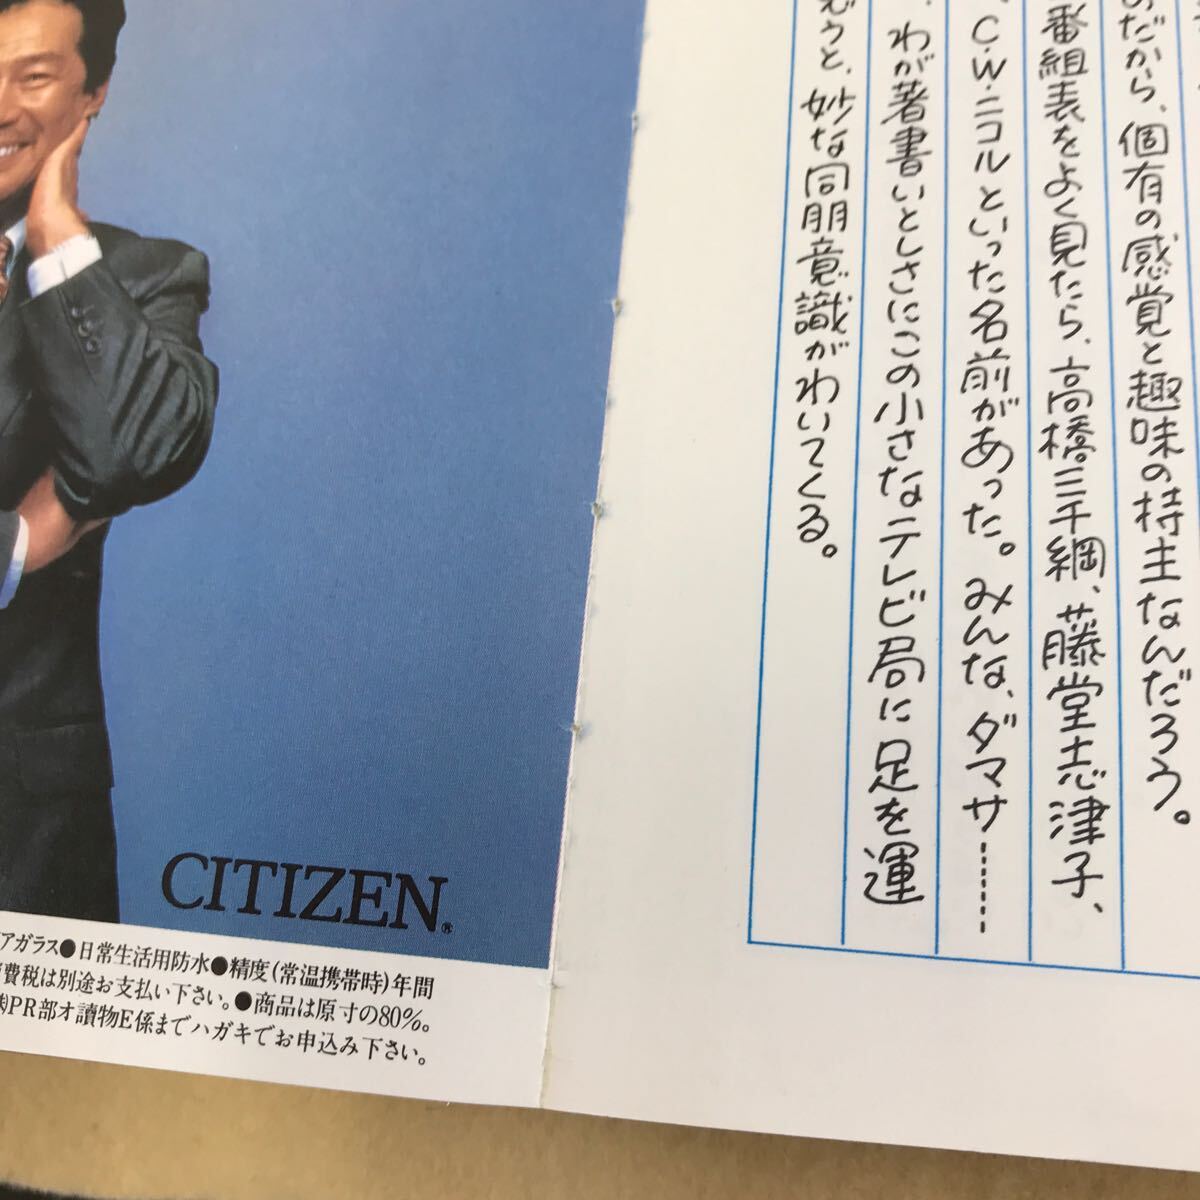 だから、個有の感覚と趣味の持主なんだろう。
番組表をよく見たら、高橋三千綱、藤堂志津子、
C・W・ニコルといった名前があった。みんな、ダマサ………
わが著書いとしさにこの小さなテレビ局に足を運
と、妙な同朋意識がわいてくる。
CITIZEN®
アガラス●日常生活用防水●精度(常温携帯時)年間
費税は別途お支払い下さい。●商品は原寸の80%。
PR部オ讀物E係までハガキでお申込み下さい。